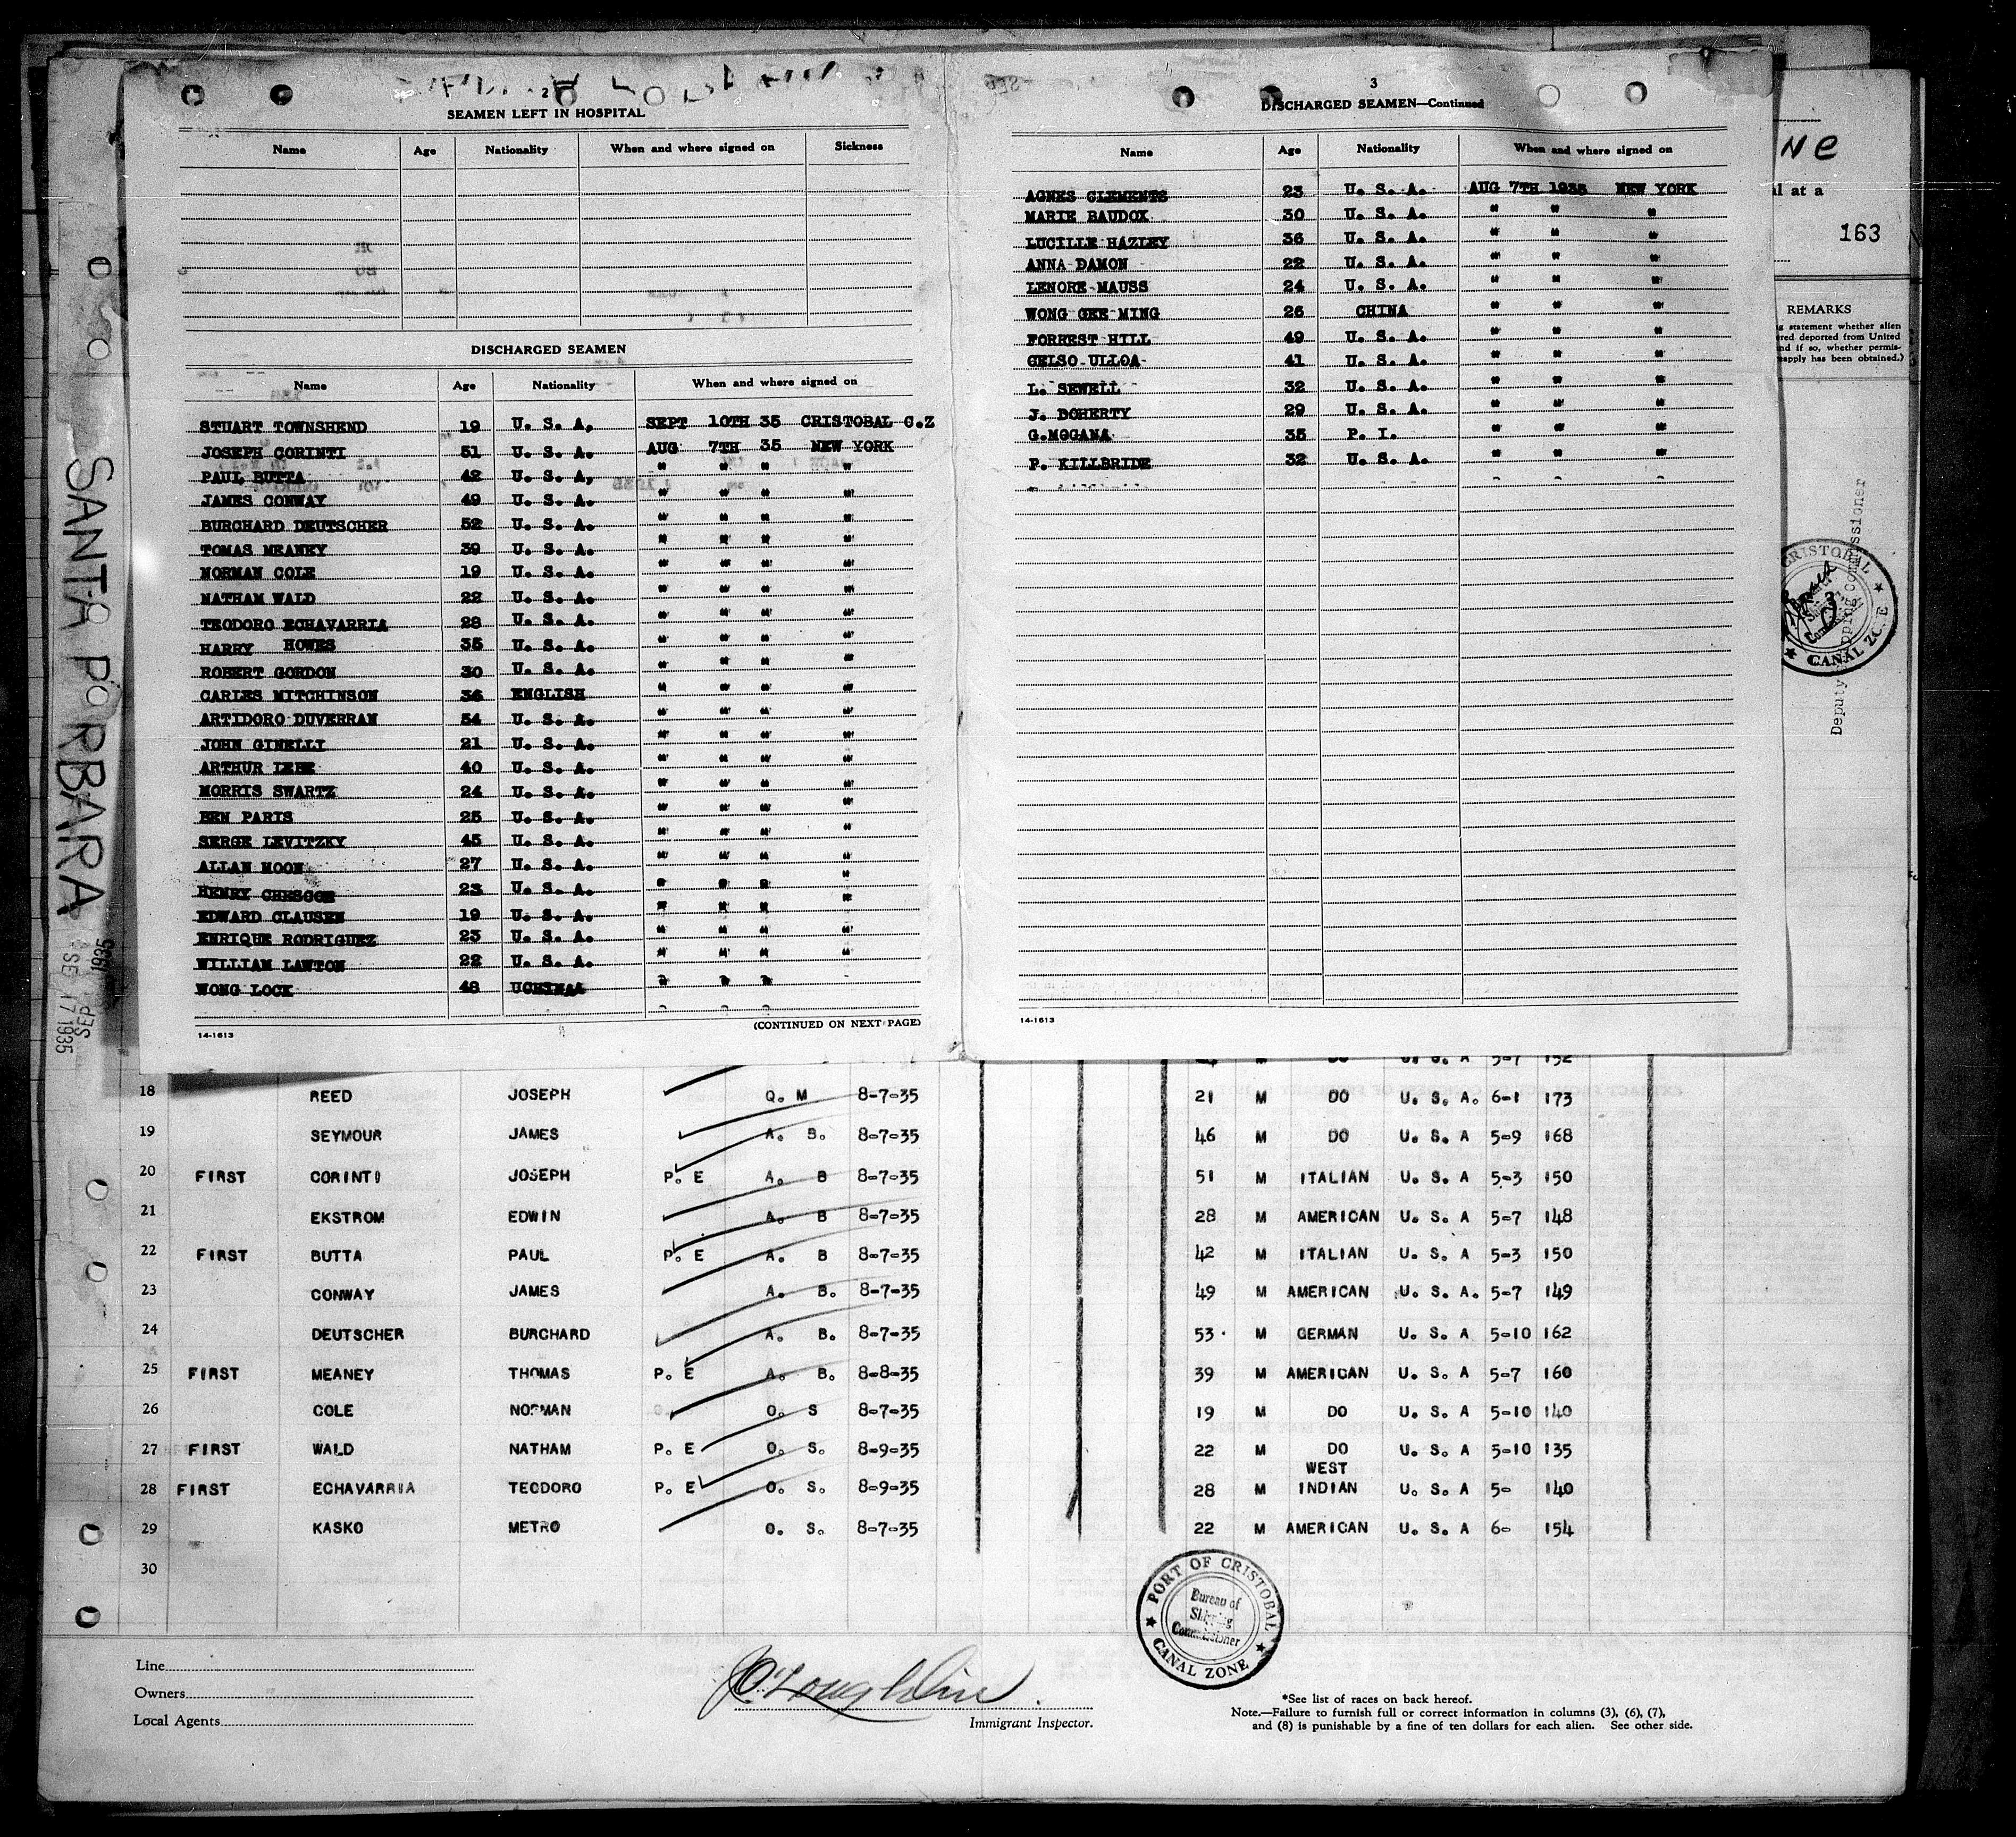 2
SEAMEN LEFT IN HOSPITAL
Name Age Nationality When and where signed on Sickness
DISCHARGED SEAMEN
Name Age Nationality When and where signed on
STUART TOWNSHEND 19 U. S. A. SEPT 10TH 35 CRISTOBAL C.Z
JOSEPH CORINTI 51 U. S. A. AUG 7TH 35 NEW YORK
PAUL BUTTA 42 U. S. A. " " " "
JAMES CONWAY 49 U. S. A. " " " "
BURCHARD DEUTSCHER 52 U. S. A. " " " "
TOMAS MEANEY 39 U. S. A. " " " "
NORMAN COLE 19 U. S. A. " " " "
NATHAM WALD 22 U. S. A. " " " "
TEODORO ECHAVARRIA 28 U. S. A. " " " "
HARRY HOWES 35 U. S. A. " " " "
ROBERT GORDON 30 U. S. A. " " " "
CARLES MITCHINSON 36 ENGLISH " " " "
ARTIDORO DUVERRAN 54 U. S. A. " " " "
JOHN GINELLI 21 U. S. A. " " " "
ARTHUR LEBE 40 U. S. A. " " " "
MORRIS SWARTZ 24 U. S. A. " " " "
BEN PARIS 25 U. S. A. " " " "
SERGE LEVITZKY 45 U. S. A. " " " "
ALLAN MOON 27 U. S. A. " " " "
HENRY CHESCOE 23 U. S. A. " " " "
EDWARD CLAUSEN 19 U. S. A. " " " "
ENRIQUE RODRIGUEZ 23 U. S. A. " " " "
WILLIAM LAWTON 22 U. S. A. " " " "
WONG LOCK 48 CHINA " " "
14-1613 (CONTINUED ON NEXT PAGE)
3
DISCHARGED SEAMEN—Continued
Name Age Nationality When and where signed on
AGNES CLEMENTS 23 U. S. A. AUG 7TH 1935 NEW YORK
MARIE BAUDOX 30 U. S. A. " " "
LUCILLE HAZLEY 36 U. S. A. " " "
ANNA DAMON 22 U. S. A. " " "
LENORE MAUSS 24 U. S. A. " " "
WONG GEE MING 26 CHINA " " "
FORREST HILL 49 U. S. A. " " "
CELSO ULLOA 41 U. S. A. " " "
L. SEWELL 32 U. S. A. " " "
J. DOHERTY 29 U. S. A. " " "
G.MOGANA 35 P. I. " " "
P. KILLBRIDE 32 U. S. A. " " "
14-1613
ne
al at a
163
REMARKS
statement whether alien
ered deported from United
nd if so, whether permis-
eapply has been obtained.)
CRISTOBAL
CANAL ZONE
Deputy Shipping Commissioner
SANTA BARBARA
SEP 1935
SEP 17 1935
DO U. S. A 5-7 152
18 REED JOSEPH Q. M 8-7-35 21 M DO U. S. A. 6-1 173
19 SEYMOUR JAMES A. B. 8-7-35 46 M DO U. S. A 5-9 168
20 FIRST CORINTO JOSEPH P. E A. B 8-7-35 51 M ITALIAN U. S. A 5-3 150
21 EKSTROM EDWIN A. B 8-7-35 28 M AMERICAN U. S. A 5-7 148
22 FIRST BUTTA PAUL P. E A. B 8-7-35 42 M ITALIAN U. S. A 5-3 150
23 CONWAY JAMES A. B. 8-7-35 49 M AMERICAN U. S. A. 5-7 149
24 DEUTSCHER BURCHARD A. B. 8-7-35 53 M GERMAN U. S. A 5-10 162
25 FIRST MEANEY THOMAS P. E A. B. 8-8-35 39 M AMERICAN U. S. A 5-7 160
26 COLE NORMAN O. S 8-7-35 19 M DO U. S. A 5-10 140
27 FIRST WALD NATHAM P. E O. S. 8-9-35 22 M DO U. S. A 5-10 135
28 FIRST ECHAVARRIA TEODORO P. E O. S. 8-9-35 28 M WEST INDIAN U. S. A 5- 140
29 KASKO METRO O. S. 8-7-35 22 M AMERICAN U. S. A 6- 154
30
PORT OF CRISTOBAL
Bureau of
Shipping
Commissioner
CANAL ZONE
Line
Owners
Local Agents
JO'Loughlin
Immigrant Inspector.
*See list of races on back hereof.
Note.—Failure to furnish full or correct information in columns (3), (6), (7),
and (8) is punishable by a fine of ten dollars for each alien. See other side.